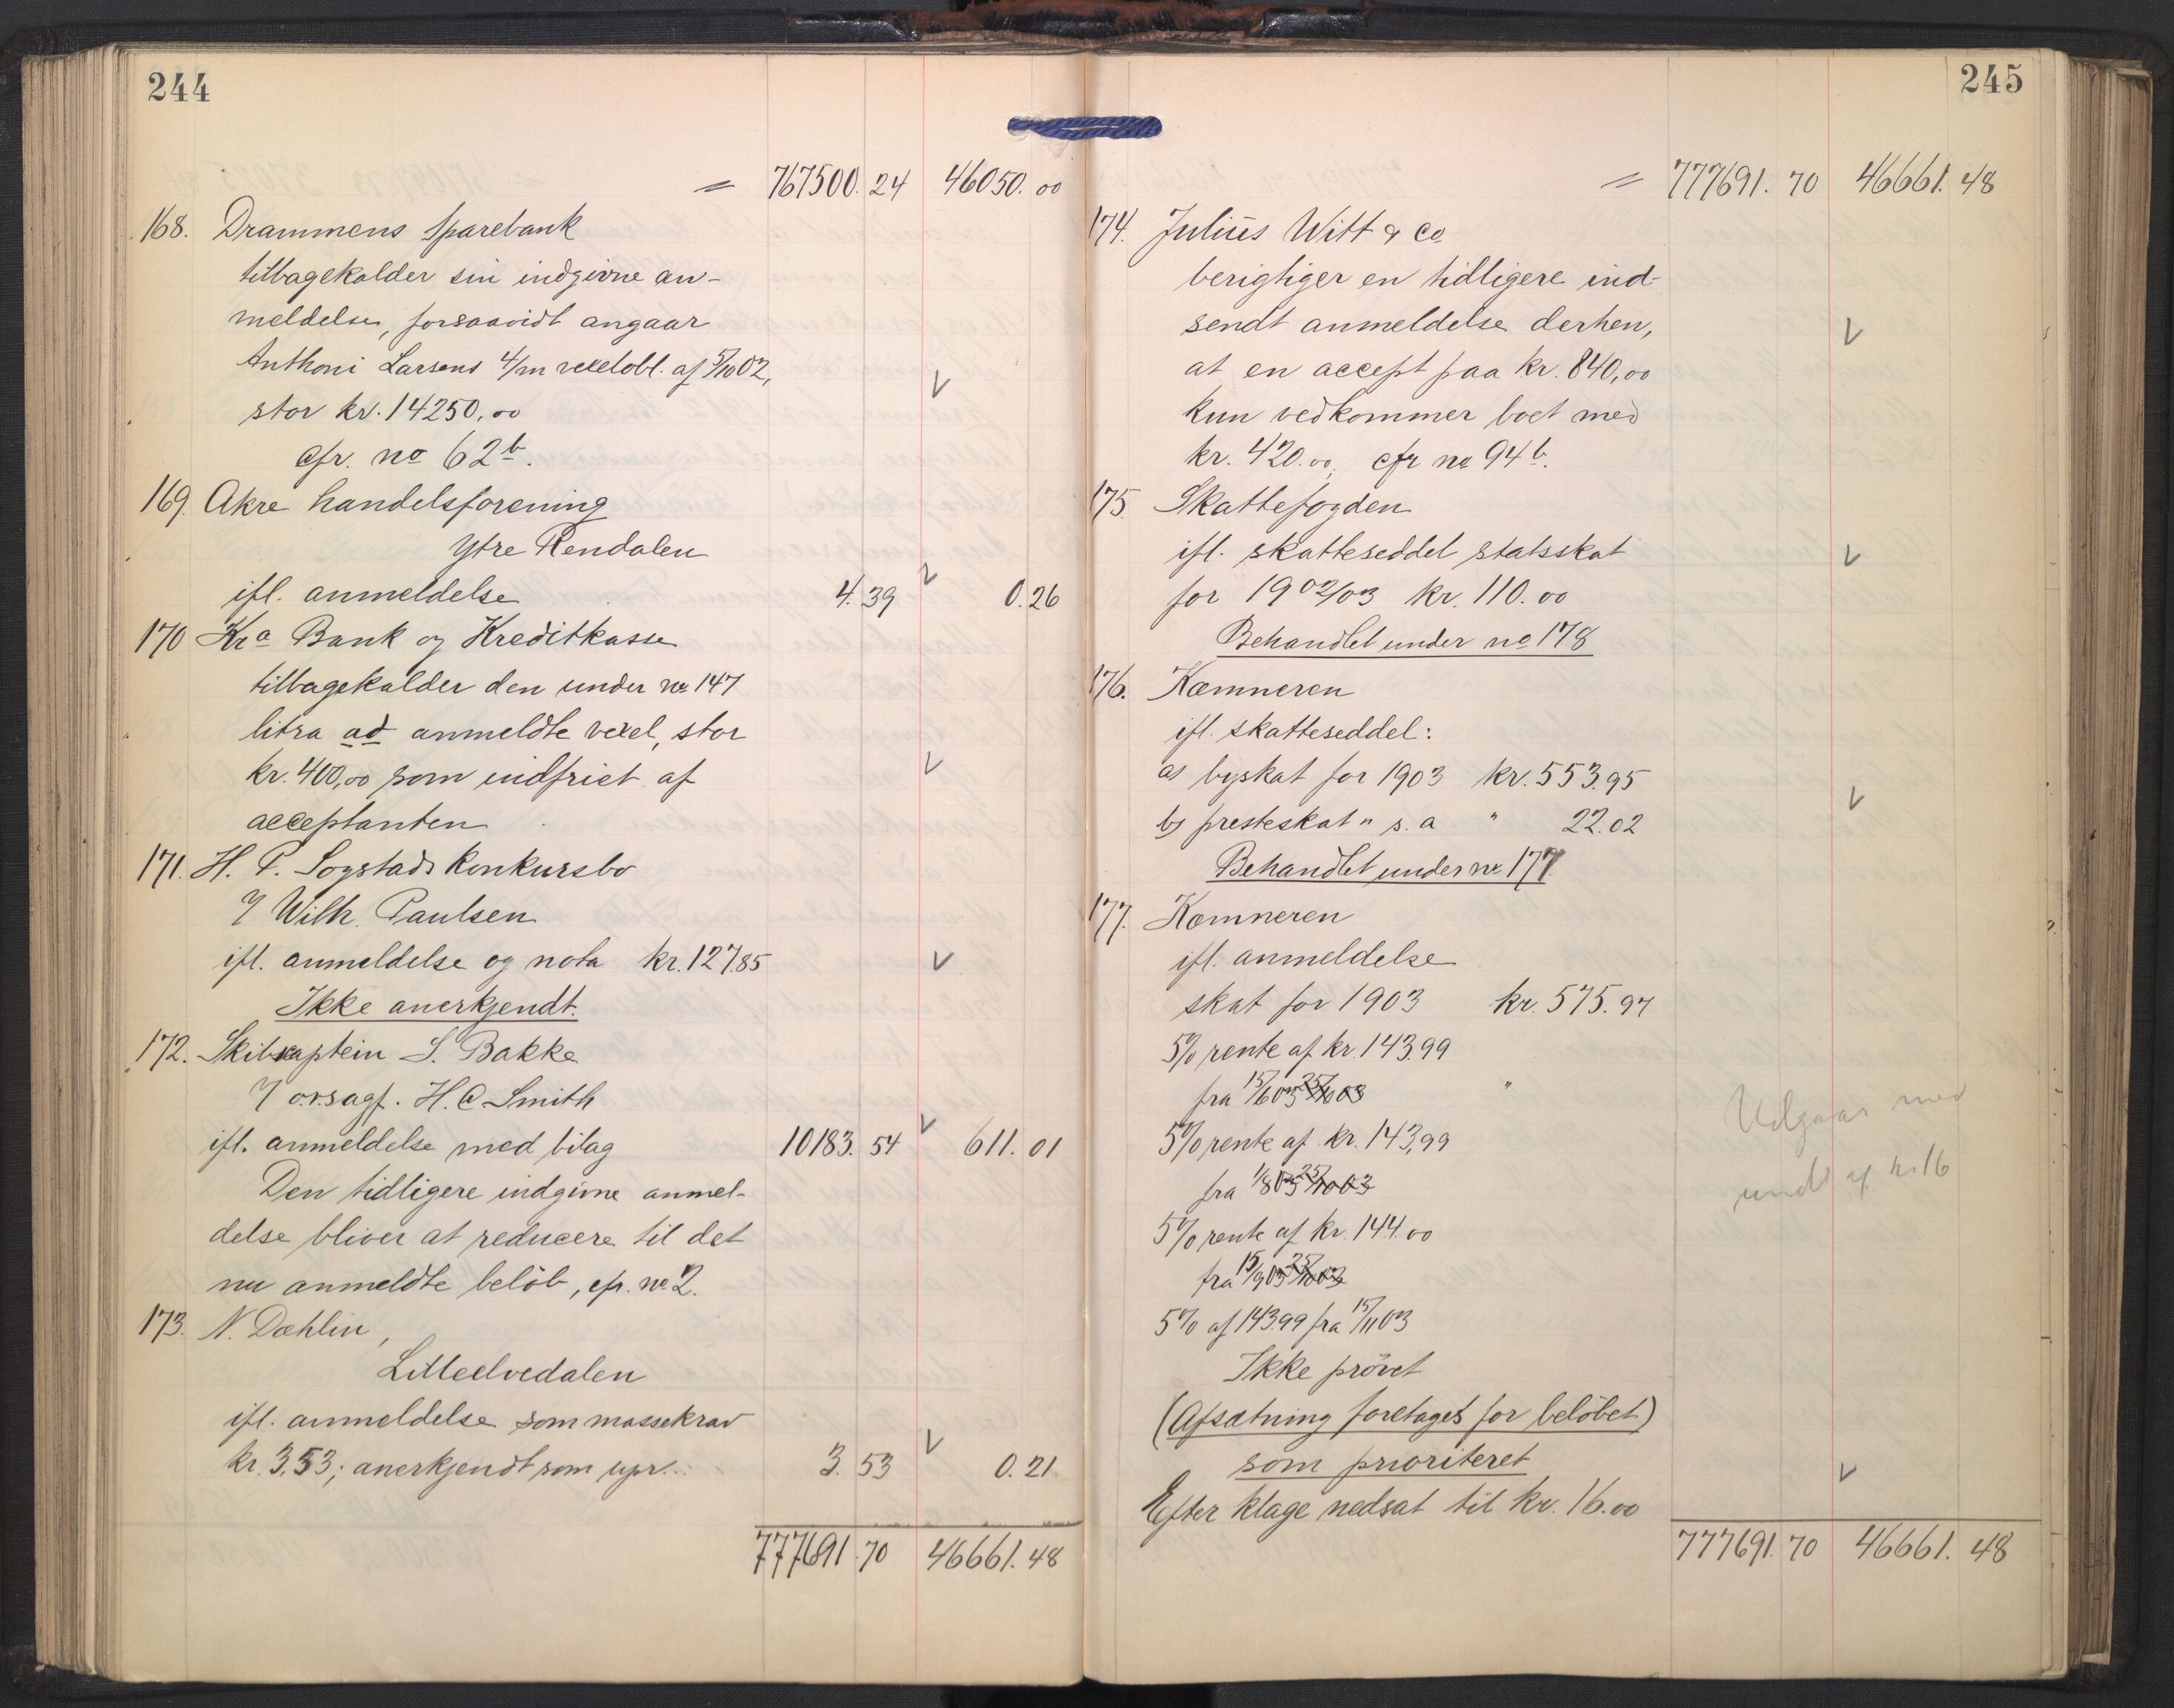 244
= 767500.24 46050.00
168. Drammens Sparebank
tilbagekalder sin indgivne an-
meldelse, forsaavidt angaar
Anthoni Larsens 4/m vexelobl. af 5/10 02,
stor kr. 14250,00
cfr. no 62 b.
169. Akre handelsforening
Ytre Rendalen
ifl. anmeldelse 4.39 0.26
170 Kra Bank og Kreditkasse
tilbagekalder den under no 147
litra ad anmeldte vexel, stor
kr. 400,00 som indfriet af
acceptanten
171. H. P. Sogstads konkursbo
v/ Wilh. Paulsen
ifl. anmeldelse og nota kr. 127.85
Ikke anerkjendt.
172. Skibskaptein S. Bakke
v/ o.r.sagf. H. C Smith
ifl. anmeldelse med bilag 10183.54 611.01
Den tidligere indgivne anmel-
delse bliver at reducere til det
nu anmeldte beløb, cfr. no 2.
173. N. Dæhlin,
Lilleelvedalen
ifl. anmeldelse som massekrav
kr. 3.53; anerkjendt som upr. 3.53 0.21
777691.70 46661.48
245
= 777691.70 46661.48
174. Julius Witt & Co
berigtiger en tidligere ind-
sendt anmeldelse derhen,
at en accept paa kr. 840,00
kun vedkommer boet med
kr. 420.00, cfr no 94 b.
175. Skattefogden
ifl. skatteseddel statsskat
for 1902/03 kr. 110.00
Behandlet under no 178
176. Kæmneren
ifl. skatteseddel:
a) byskat for 1903 kr. 553.95
b) presteskat " s. a " 22.02
Behandlet under no 177
177. Kæmneren
ifl. anmeldelse
skat for 1903 kr. 575.97
5% rente af kr. 143.99
fra 15/6 03 25/10 03 "
5% rente af kr. 143,99
fra 1/8 03 25/10 03
5% rente af kr. 144.00
fra 15/9 03 25/10 03
5% af 143.99 fra 15/11 03
Ikke prøvet
(Afsætning foretages for beløbet)
som prioriteret
Efter klage nedsat til kr. 16.00
Udgaar med
undt af kr. 16
777691.70 46661.48